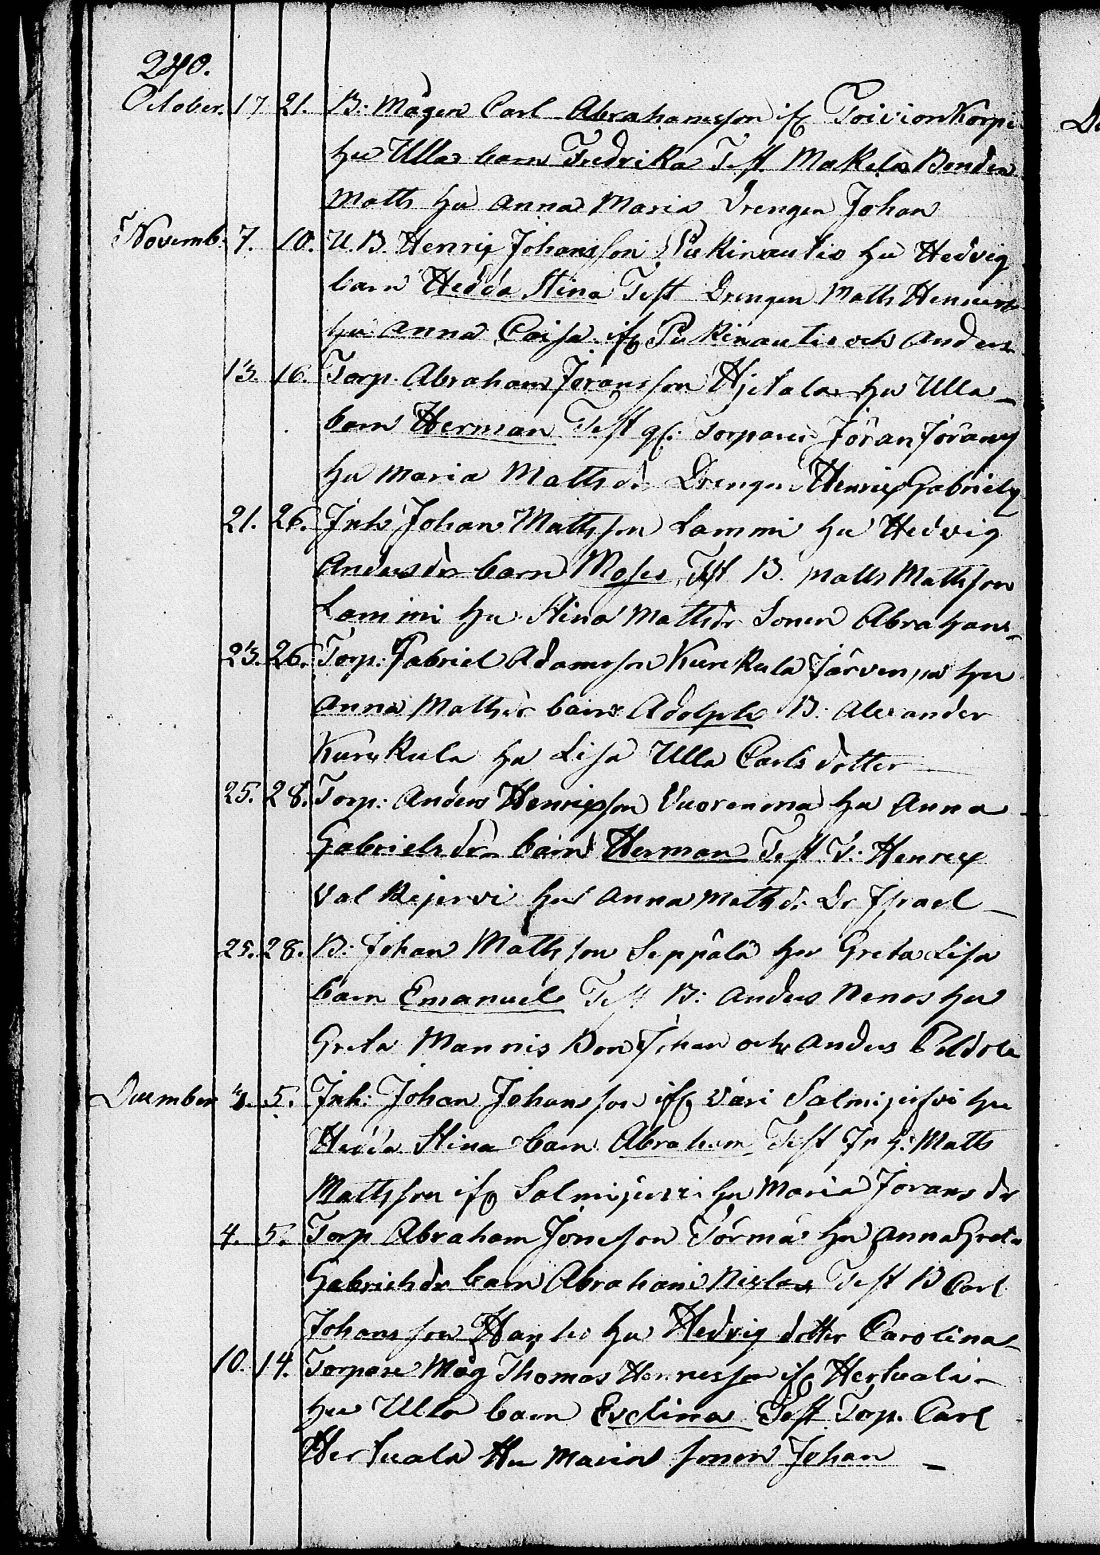 240.
October. 17 21. B: Mågen Carl Abrahamsson ifr Toivionkorpi
hu Ulla barn Fredrika Test. Makela Bonden
Matts hu Anna Maria Drengen Johan
Novemb. 7. 10. U.B. Henrix Johansson Pukinautio hu Hedvig
barn Hedda Stina Test Drengen Matts
hu Anna Caisa ifr Pukinautio och Anders
13. 16. Torp. Abraham Joransson Hjetala hu Ulla
barn Herman Test gl: Torparen Jöran Jöransson
hu Maria Mattsdr Drengen Henrix Gabrielss
21. 26. Inh Johan Mattsson Lammi hu Hedvig
Andersdr barn Moses Test B. Matts Mattsson
Lammi hu Stina Mattsdr Sonen Abraham
23. 26. Torp: Gabriel Adamsson Kurikula Järvenpä hu
Anna Mattsdr barn Adolph B. Alexander
Kurikula hu Lisa Ulla Carlsdotter
25. 28. Torp: Anders Henrixson Vuorenma hu Anna
Gabrielsdr barn Herman Test T: Henrix
Valkejervi hu Anna Mattsdr Dr Israel
25. 28. B: Johan Mattsson Seppälä hu Greta Lisa
barn Emanuel Test B: Anders Nenos hu
Greta Mannis Bon Johan och Anders
December 3. 5. Inh: Johan Johansson ifr Väri Salmijerfvi hu
Hedda Stina barn Abraham Test In h: Matts
Mattsson ifr Salmijervi hu Maria Joransdr
4. 5. Torp Abraham Jonesson Törmä hu Anna Greta
Gabrielsdr barn Abraham Niclas Test B Carl
Johansson hu Hedvig dotter Carolina
10. 14. Torpare Måg Thomas Henricsson ifr Hertuala
hu Ulla barn Evelina Test Torp. Carl
Hertuala Hu Maria sonen Johan